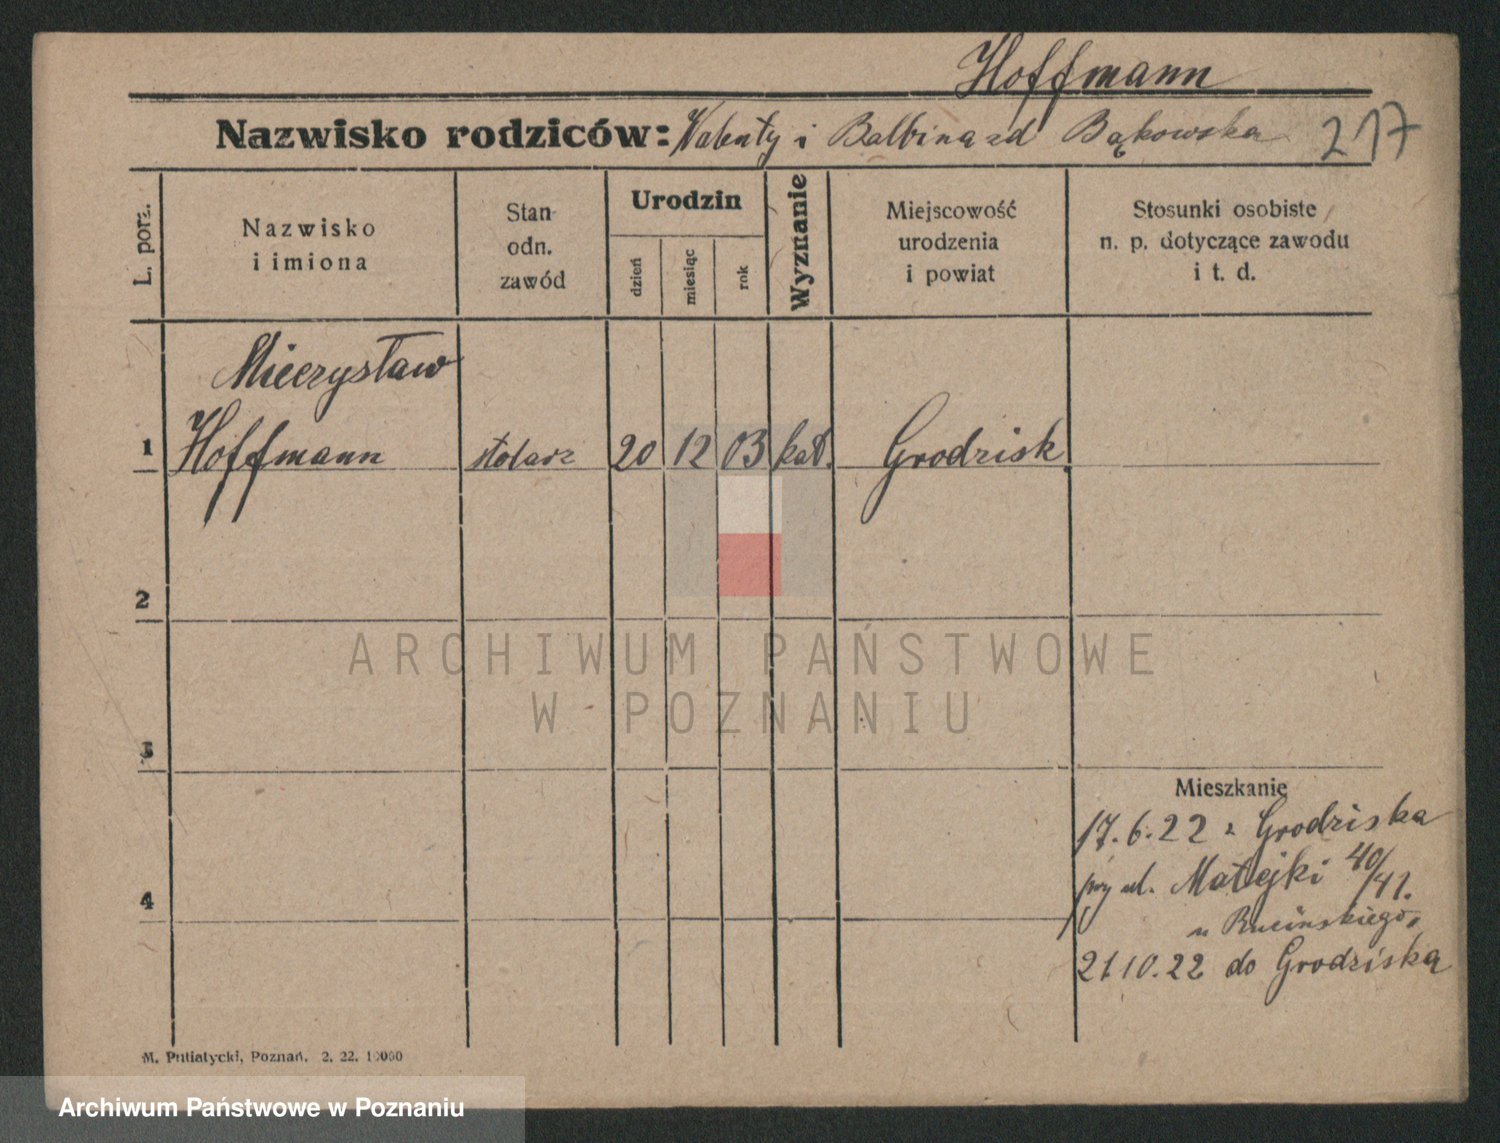 Hoffmann
Nazwisko rodziców: Walenty i Balbina zd Bąkowska 217
L. porz.
Nazwisko
i imiona
Stan
odn.
zawód
Urodzin
dzień
miesiąc
rok
Wyznanie
Miejscowość
urodzenia
i powiat
Stosunki osobiste
n. p. dotyczące zawodu
i t. d.
Mieczysław
1 Hoffmann stolarz 20 12 03 kat. Grodzisk
2
3
Mieszkanie
17.6.22 z Grodziska
przy ul. Matejki 40/41.
4
u Rucińskiego,
21.10.22 do Grodziska
M. Putiatycki, Poznań. 2. 22. 10000
ARCHIWUM PAŃSTWOWE
W POZNANIU
Archiwum Państwowe w Poznaniu